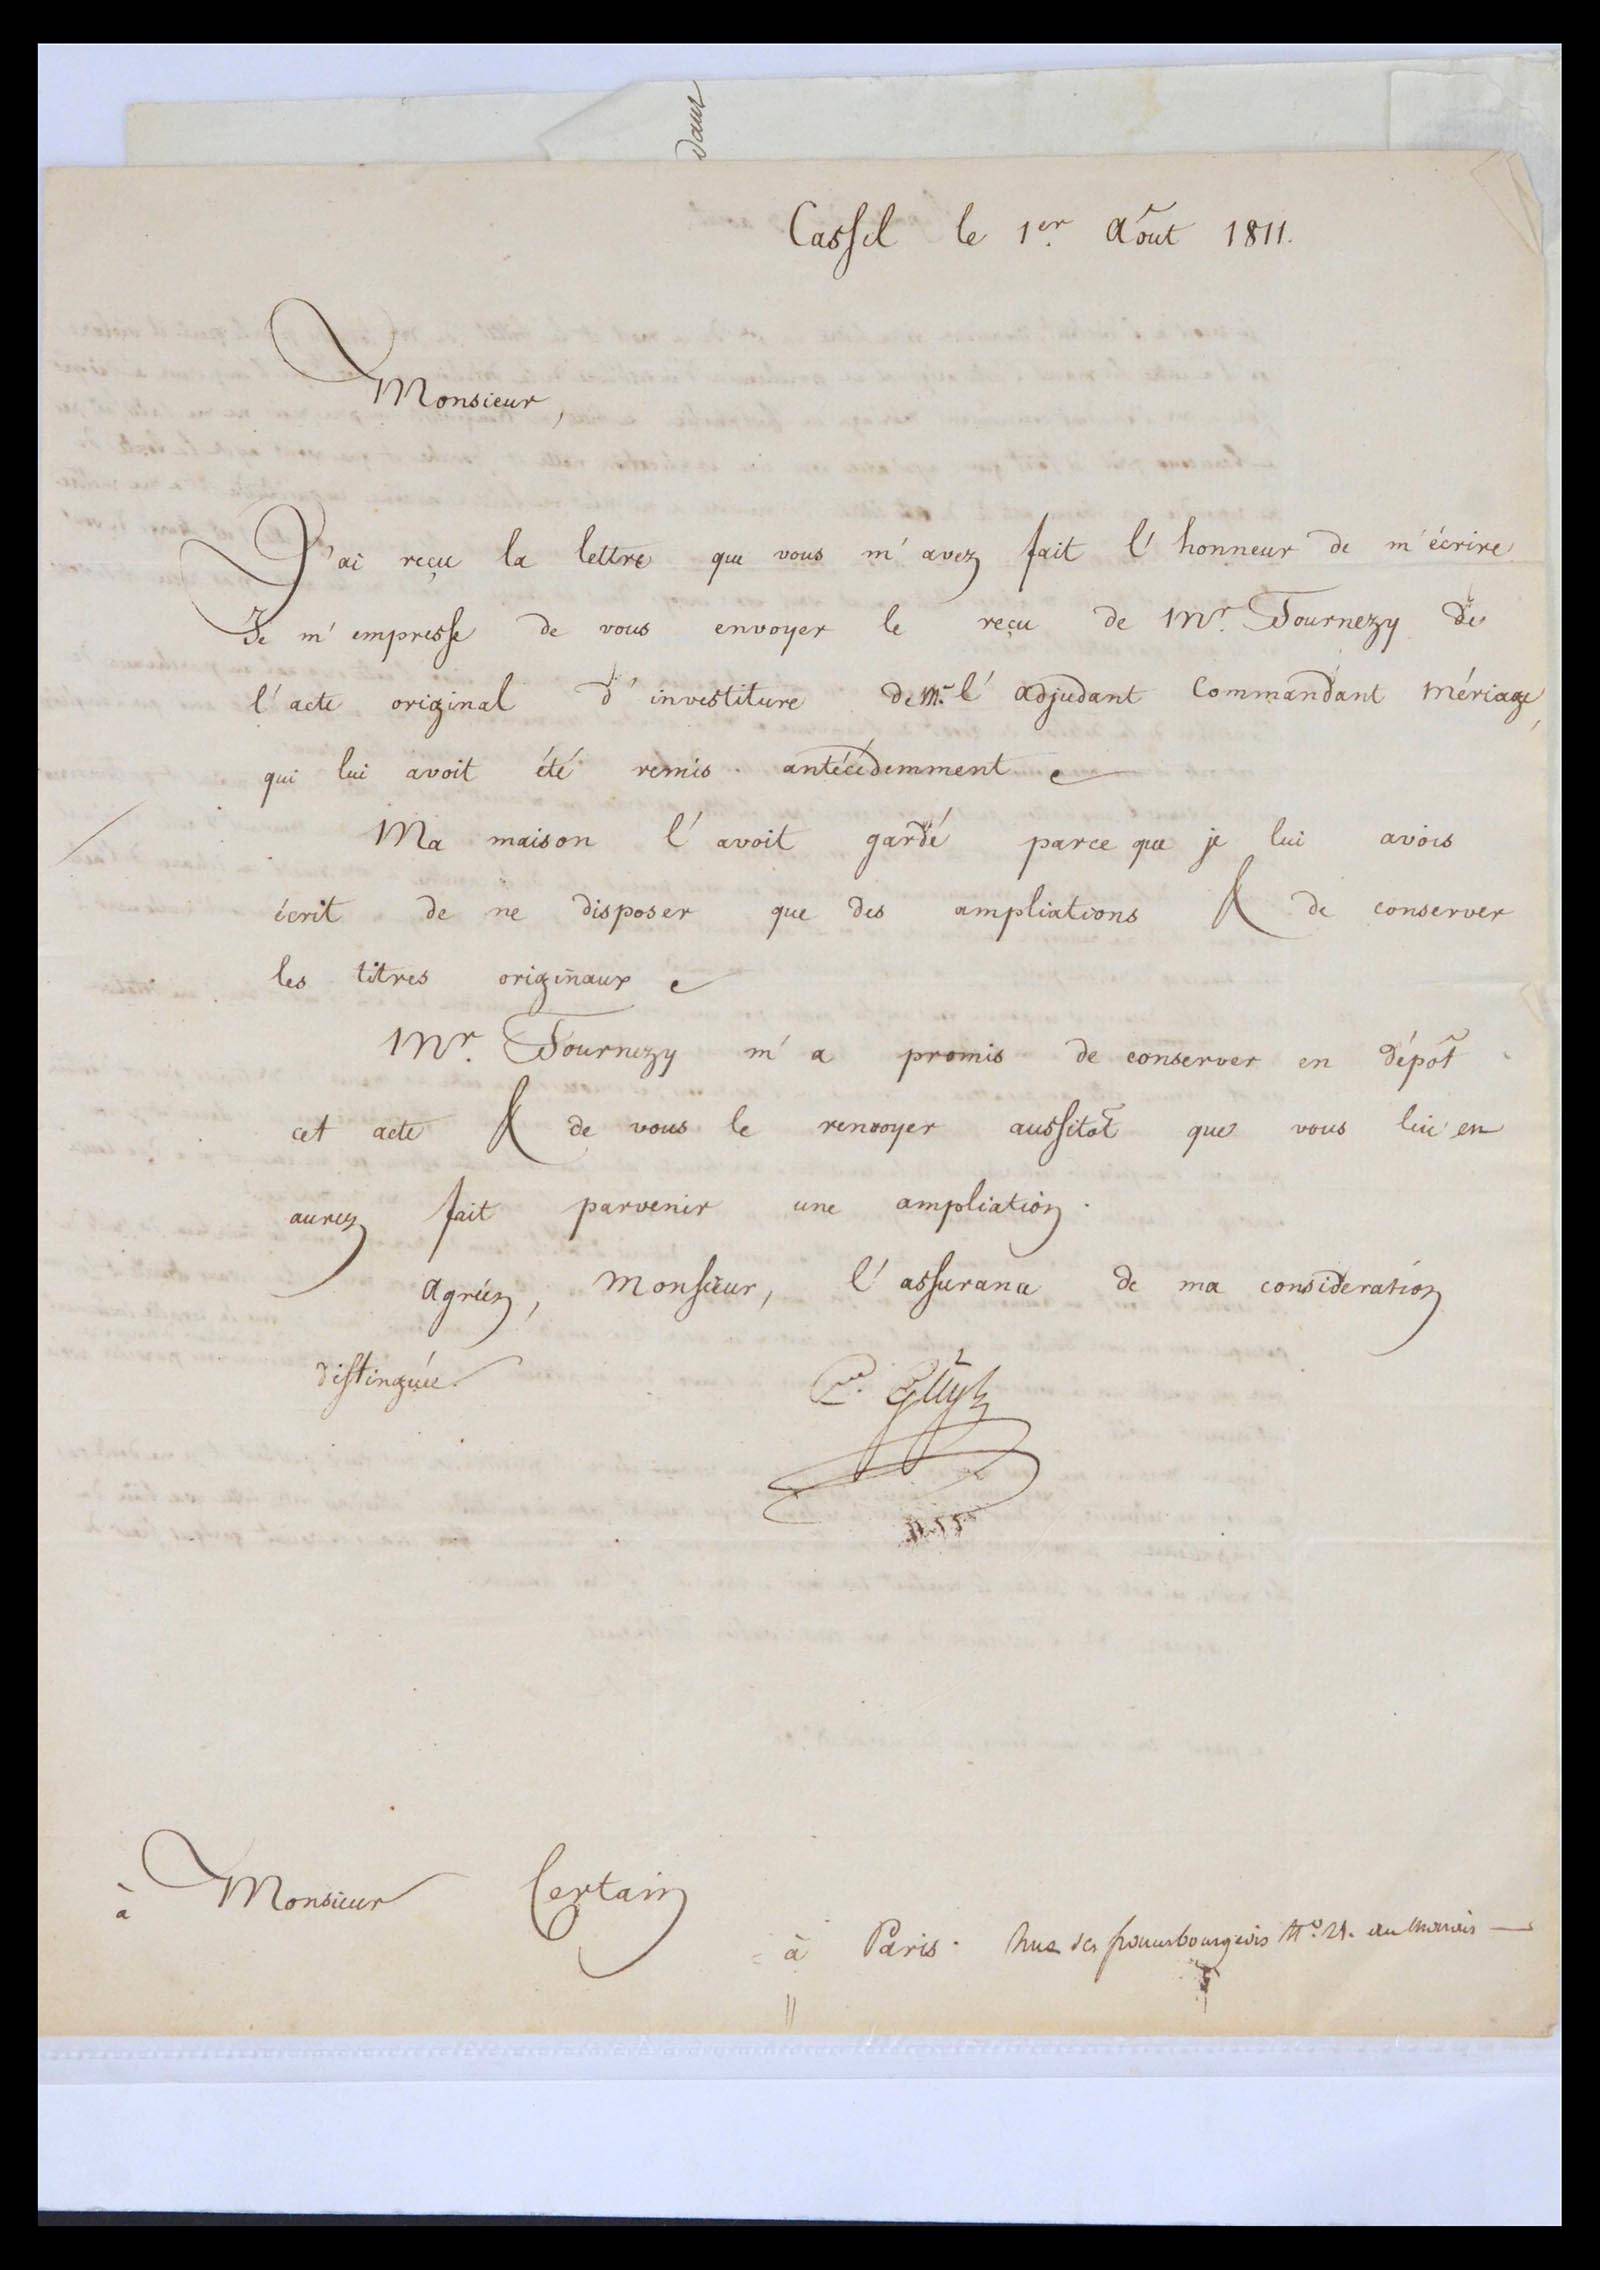 dant
Cassel le 1er Août 1811.
Monsieur,
J'ai reçu la lettre que vous m'avez fait l'honneur de m'écrire
Je m'empresse de vous envoyer le reçu de Mr. Tournezy de
l'acte original d'investiture de Mr. l'adjudant Commandant Mériage,
qui lui avoit été remis antécédemment
Ma maison l'avoit gardé parce que je lui avois
écrit de ne disposer que des ampliations & de conserver
les titres originaux
Mr. Tournezy m'a promis de conserver en dépôt
cet acte & de vous le renvoyer aussitôt que vous lui en
aurez fait parvenir une ampliation.
Agréez, Monsieur, l'assurance de ma consideration
distinguée.
à Monsieur Certain
à Paris. Rue des francsbourgeois No. 21. au Marais